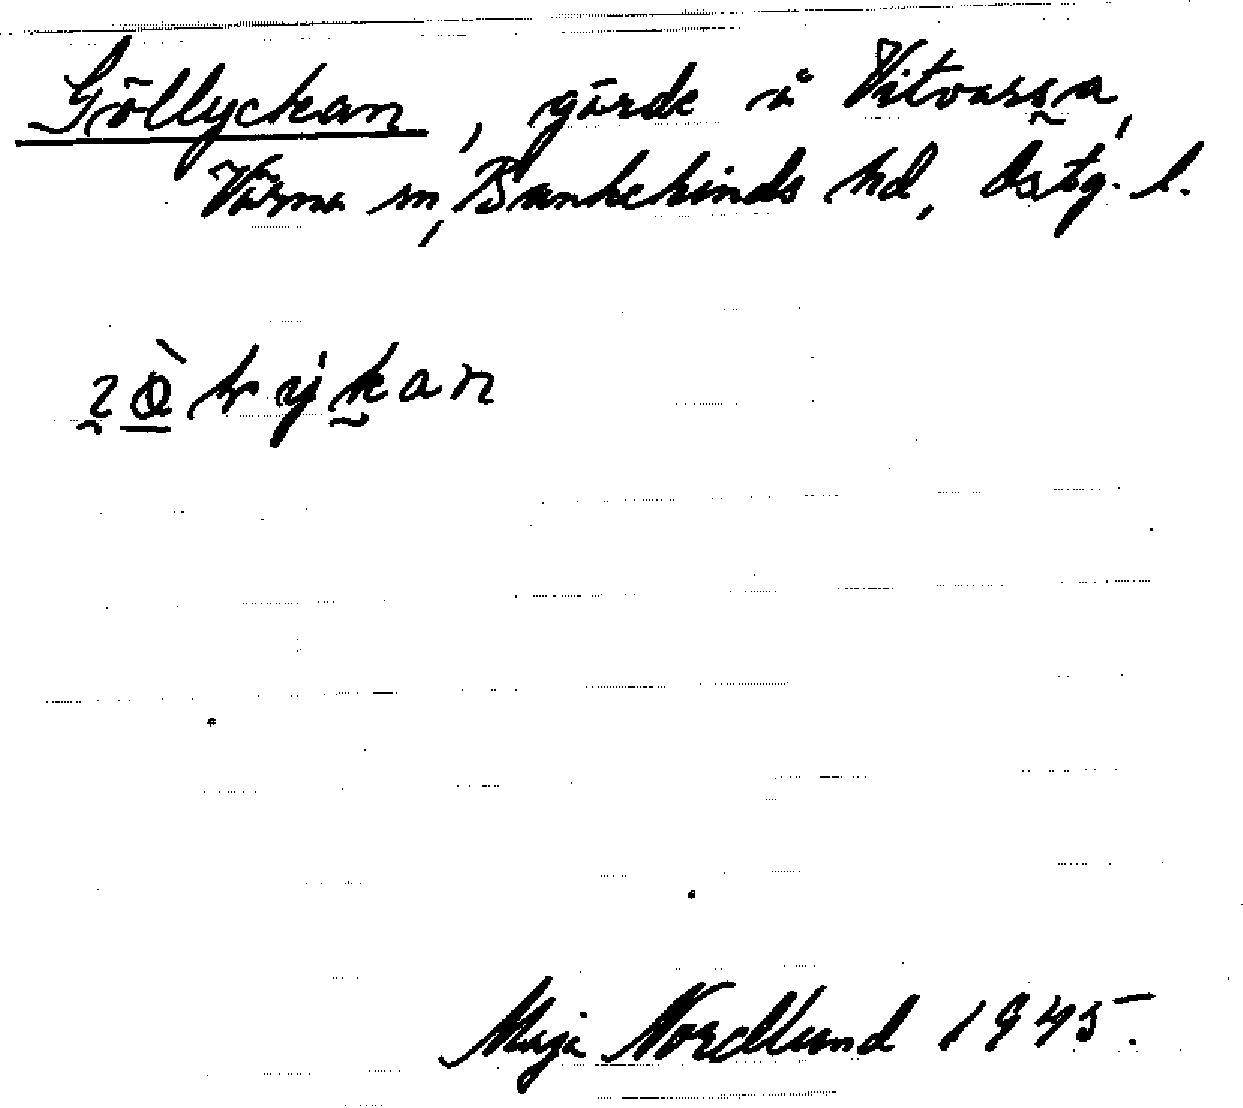 Göllyckan, gärde å Vitvarga,
Värna sn, Bankekinds hd, Östg. l.
Maja Nordlund 1945.